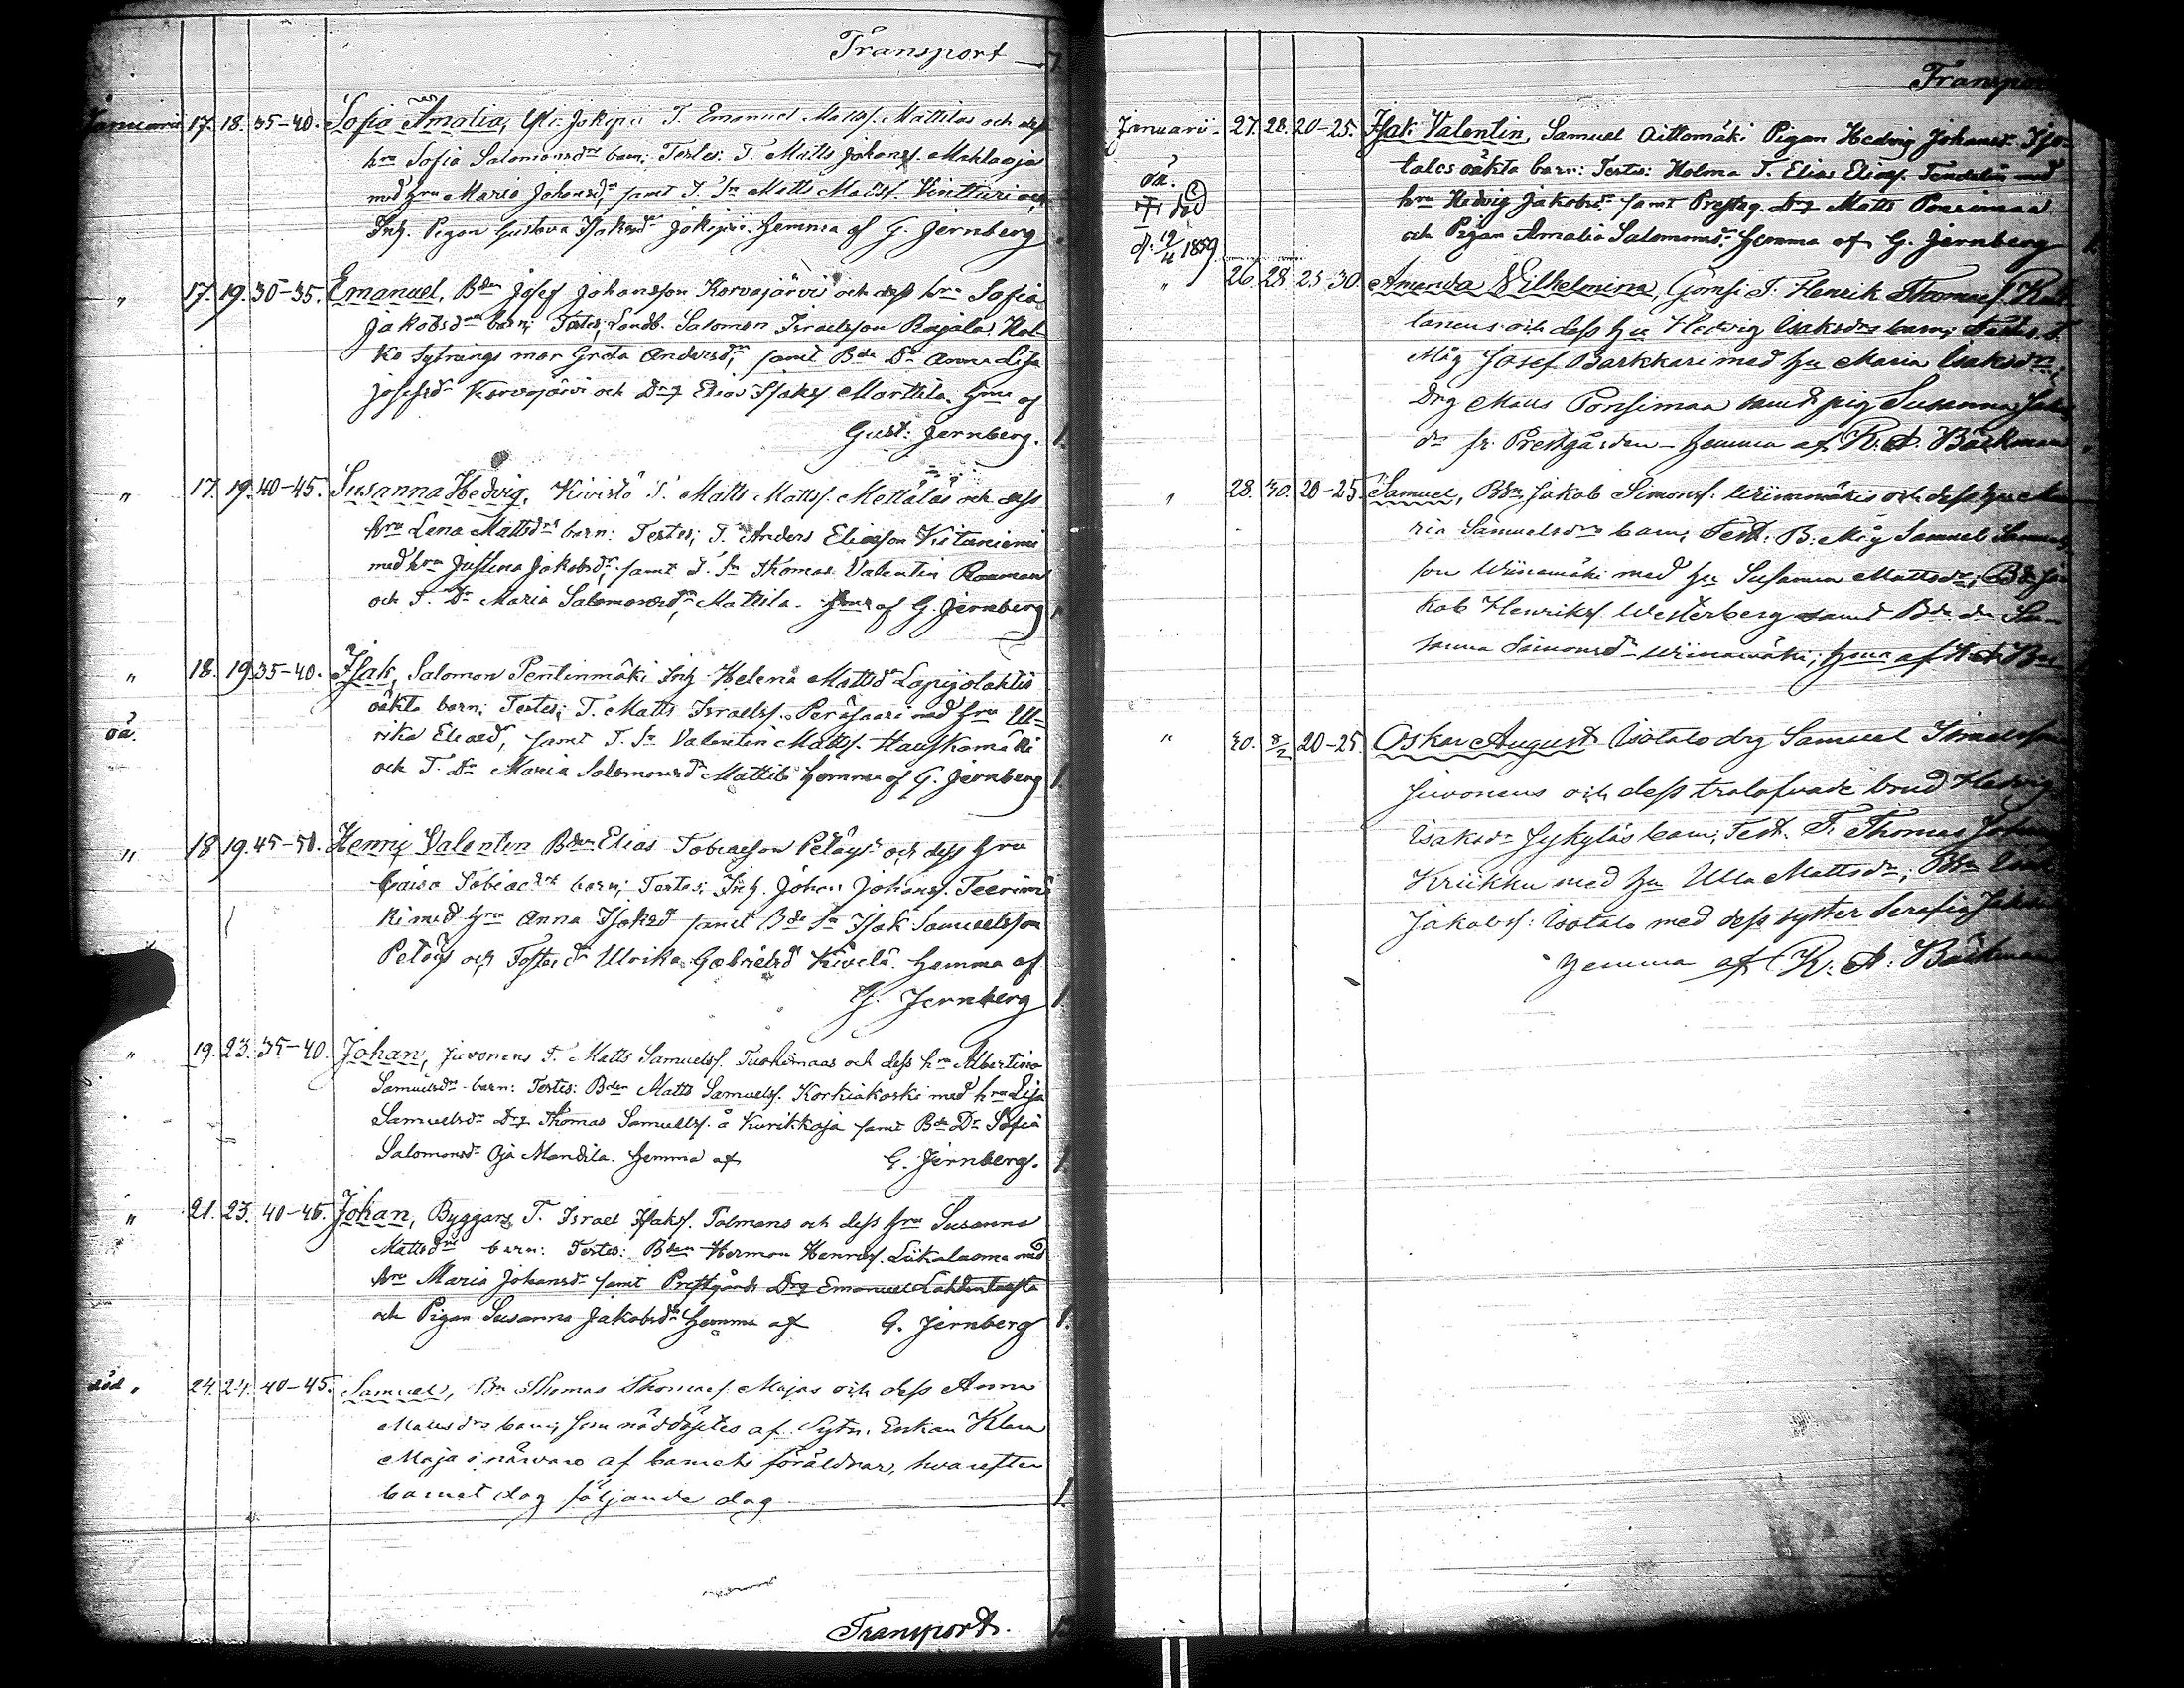 Transport 7.
Januarii 17. 18. 35-40. Sofia Amalia, Jokipii T. Emanuel Mattsf. Mattilas och dess
hru Sofia Salomonsdrs barn; Testes: T. Matts Johansf. Maklaoja
med hru Maria Johansdr, samt T. Sn Matts Mattsf. Vintturi och
Inh. Pigan Gustava Isaksdr Jokipii. Hemma af G. Jernberg
" 17. 19. 30-35. Emanuel, Bden Josef Johansson Korvajärvis och dess hru Sofia
Jakobsdrs barn; Testes; Landb. Salomon Israelsson Rajala, Hol-
ko Sytnings mor Greta Andersdr, samt Bde Dr Anna Lisa
Josefsdr Korvajärvi och Drg Elias Isaksf Marttila. Hma af
Gust: Jernberg. 1.
" 17. 19. 40-45. Susanna Hedvig, Kivistö T. Matts Mattsf. Mettäläs och dess
hru Lena Mattsdrs barn: Testes; T. Anders Eliasson Kitaniemi
med hru Justina Jakobsdr, samt T. Sn Thomas Valentin Rauman
och T. Dr Maria Salomonsdr, Mattila. Hma af G. Jernberg 1
" 18. 19 35-40. Isak, Salomon Pentinmäki Inh Helena Mattsdr Lapijolaktis
oä. oäkta barn; Testes; T. Matts Israelsf. Peräsaari med hru Ul-
rika Eliaed, samt T. Sn Valentin Mattsf. Hauskomäki
och T. Dr Maria Salomonsdr Mattila Hemma af G. Jernberg 1
" 18 19. 45-50. Henric Valentin Bden Elias Tobiaeson Petäys och dess hru
Caisa Tobiaedrs barn; Testes; Inh. Johan Johansf. Teerimä
ki med hru Anna Isaksd samt Bde Sn Isak Samuelsson
Petäys och Foster dr Ulrika Gabrielsd Kivelä. Hemma af
G. Jernberg 1.
" 19. 23. 35-40. Johan, Juvonens T. Matts Samuelsf. Tuohimaas och dess hru Albertina
Samuelsdrs barn: Testes: Bden Matts Samuelsf. Korkiakoski med hru Lisa
Samuelsdr Drg Thomas Samuelsf. å Kurikkaja samt Bde Dr Sofia
Salomonsdr Oja Mandila. Hemma af G. Jernberg. 1
" 21. 23. 40-45. Johan, Byggars T. Israel Isaksf. Palmans och dess hru Susanna
Mattsdrs barn: Testes: Bden Herman Henrsf. Liikaluoma med
hru Maria Johansdr samt Prestgårds Drg Emanuel Lahdentausta
och Pigan Susanna Jakobsdr Hemma af G. Jernberg 1.
död " 24. 24. 40-45. Samuel, Bn Thomas Thomaef. Majas och dess Anna
Mattsdrs barn; som nöddöptes af Sytn. Enkan Klara
Maja i närvaro af barnets föräldrar, hvarefter
barnet dog följande dag 1.
Transport.
Transport
Januarii. 27. 28. 20-25. Isak Valentin, Samuel Aittomäki Pigan Hedvig Johansdr Iso-
oä. tales oäkta barn: Testes: Holma T. Elias Eliaef. Tendelin med
död hru Hedvig Jakobsdr samt Prestg. Drg Matts Ponsimaa
d. 19/4 1859. och Pigan Amalia Salomonsd. Hemma af G. Jernberg 1.
" 26 28 25-30. Amanda Wilhelmina, Gomsi T. Henrik Thomaef.
tanens och dess hu Hedvig Isaksdrs barn; Testes. T.
Måg Josef Barkkari med hu Maria Isaksdr;
Drg Matts Ponsimaa samt pig Susanna
dr fr. Prestgården - hemma af K. A. Bäckman
" 28. 30. 20-25. Samuel, Bdn Jakob Simonsf. Wiinamäkis och dess hu Ma
ria Samuelsdrs barn; Test. B. Måg Samuel
son Wiinamäki med hu Susanna Mattsdr; Bds Ja
kob Henriksf Westerberg samt Bde dr Su-
sanna Simonsdr Wiinamäki; hma af K A B
" 30. 8/2 20-25. Oskar August Isotalo drg Samuel
Juvonens och dess trolofvade brud Hedvig
Isaksdr Jykyläs barn; Test. T. Thomas
Kriikku med hu Ulla Mattsdr;
Jakobsf. Isotalo med dess syster Serafia
hemma af K. A. Bäckman